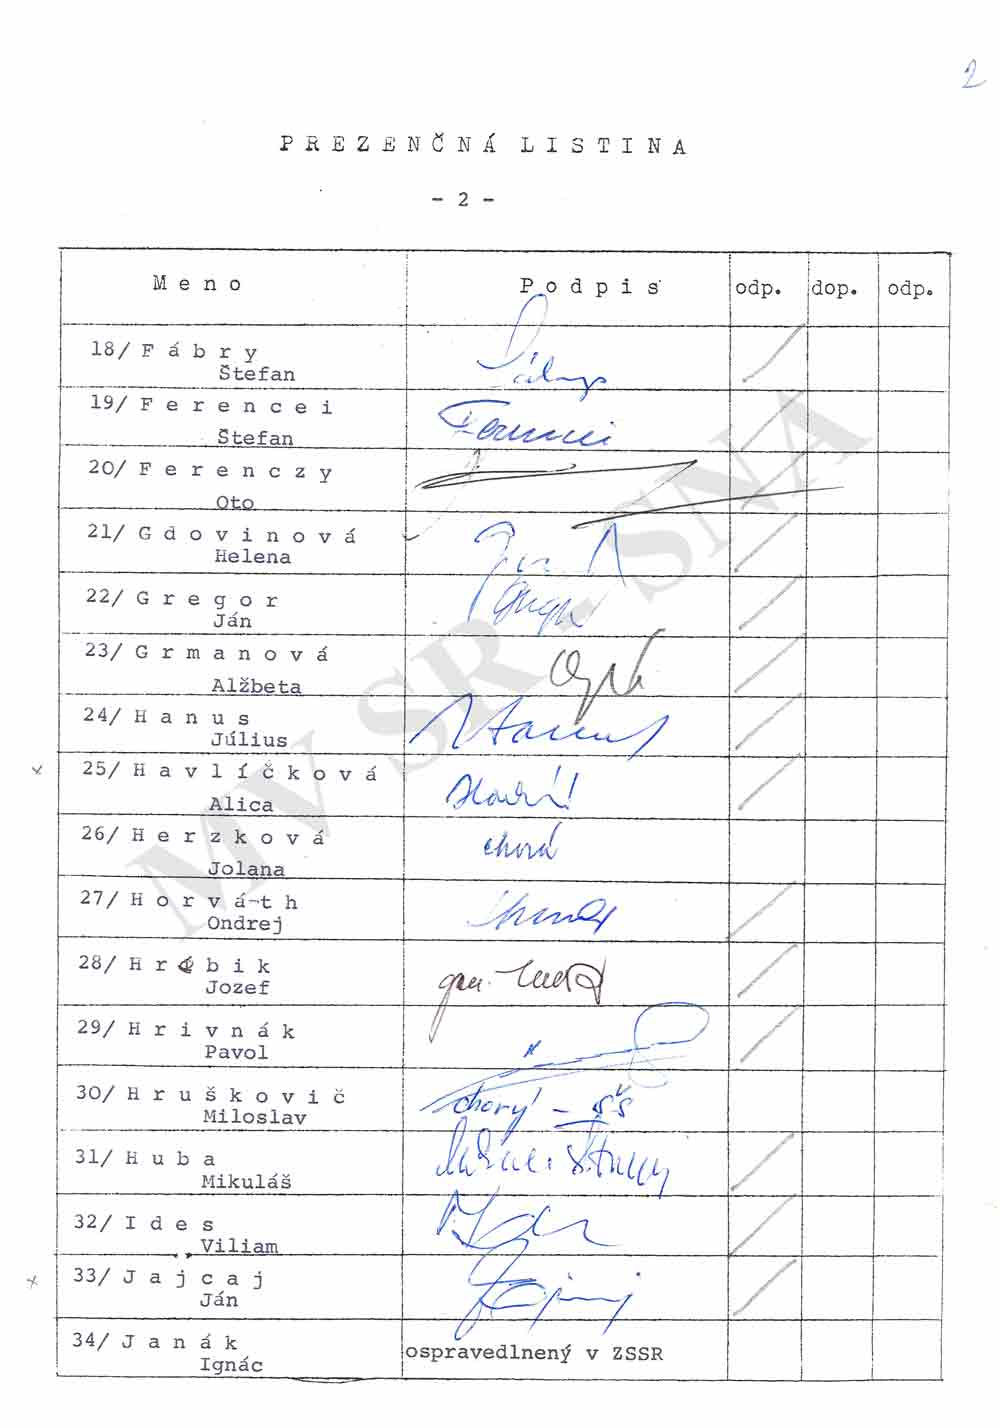 2
PREZENČNÁ LISTINA
- 2 -
Meno Podpis odp. dop. odp.
18/ Fábry
Štefan
19/ Ferencei
Štefan
Ferencei
20/ Ferenczy
Oto
21/ Gdovinová
Helena
22/ Gregor
Ján
23/ Grmanová
Alžbeta
24/ Hanus
Július
Hanus
25/ Havlíčková
Alica
26/ Herzková
Jolana
chorá
27/ Horváth
Ondrej
28/ Hrabik
Jozef
29/ Hrivnák
Pavol
30/ Hruškovič
Miloslav
chorý - SŠ
31/ Huba
Mikuláš
32/ Ides
Viliam
33/ Jajcaj
Ján
34/ Janák
Ignác
ospravedlnený v ZSSR
MV SR - SNA